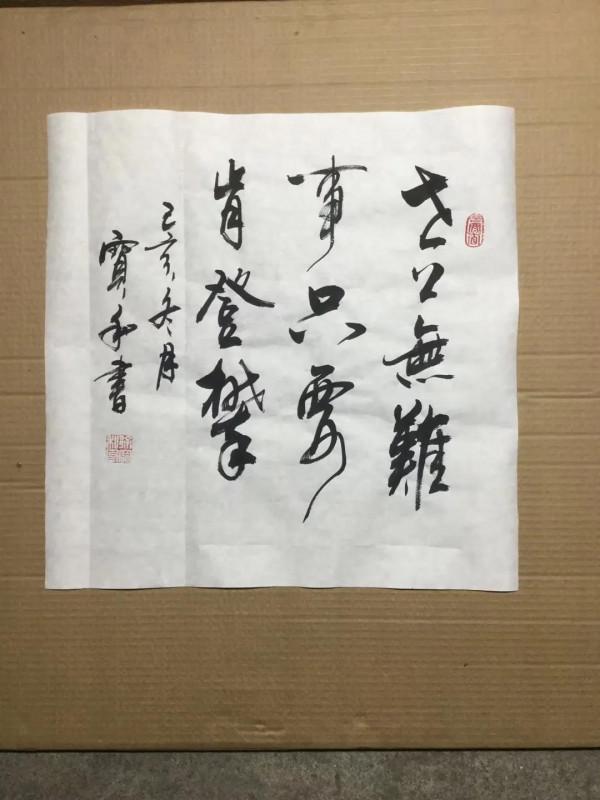 世上無難
事只要
肯登攀
己亥冬月
寶和書